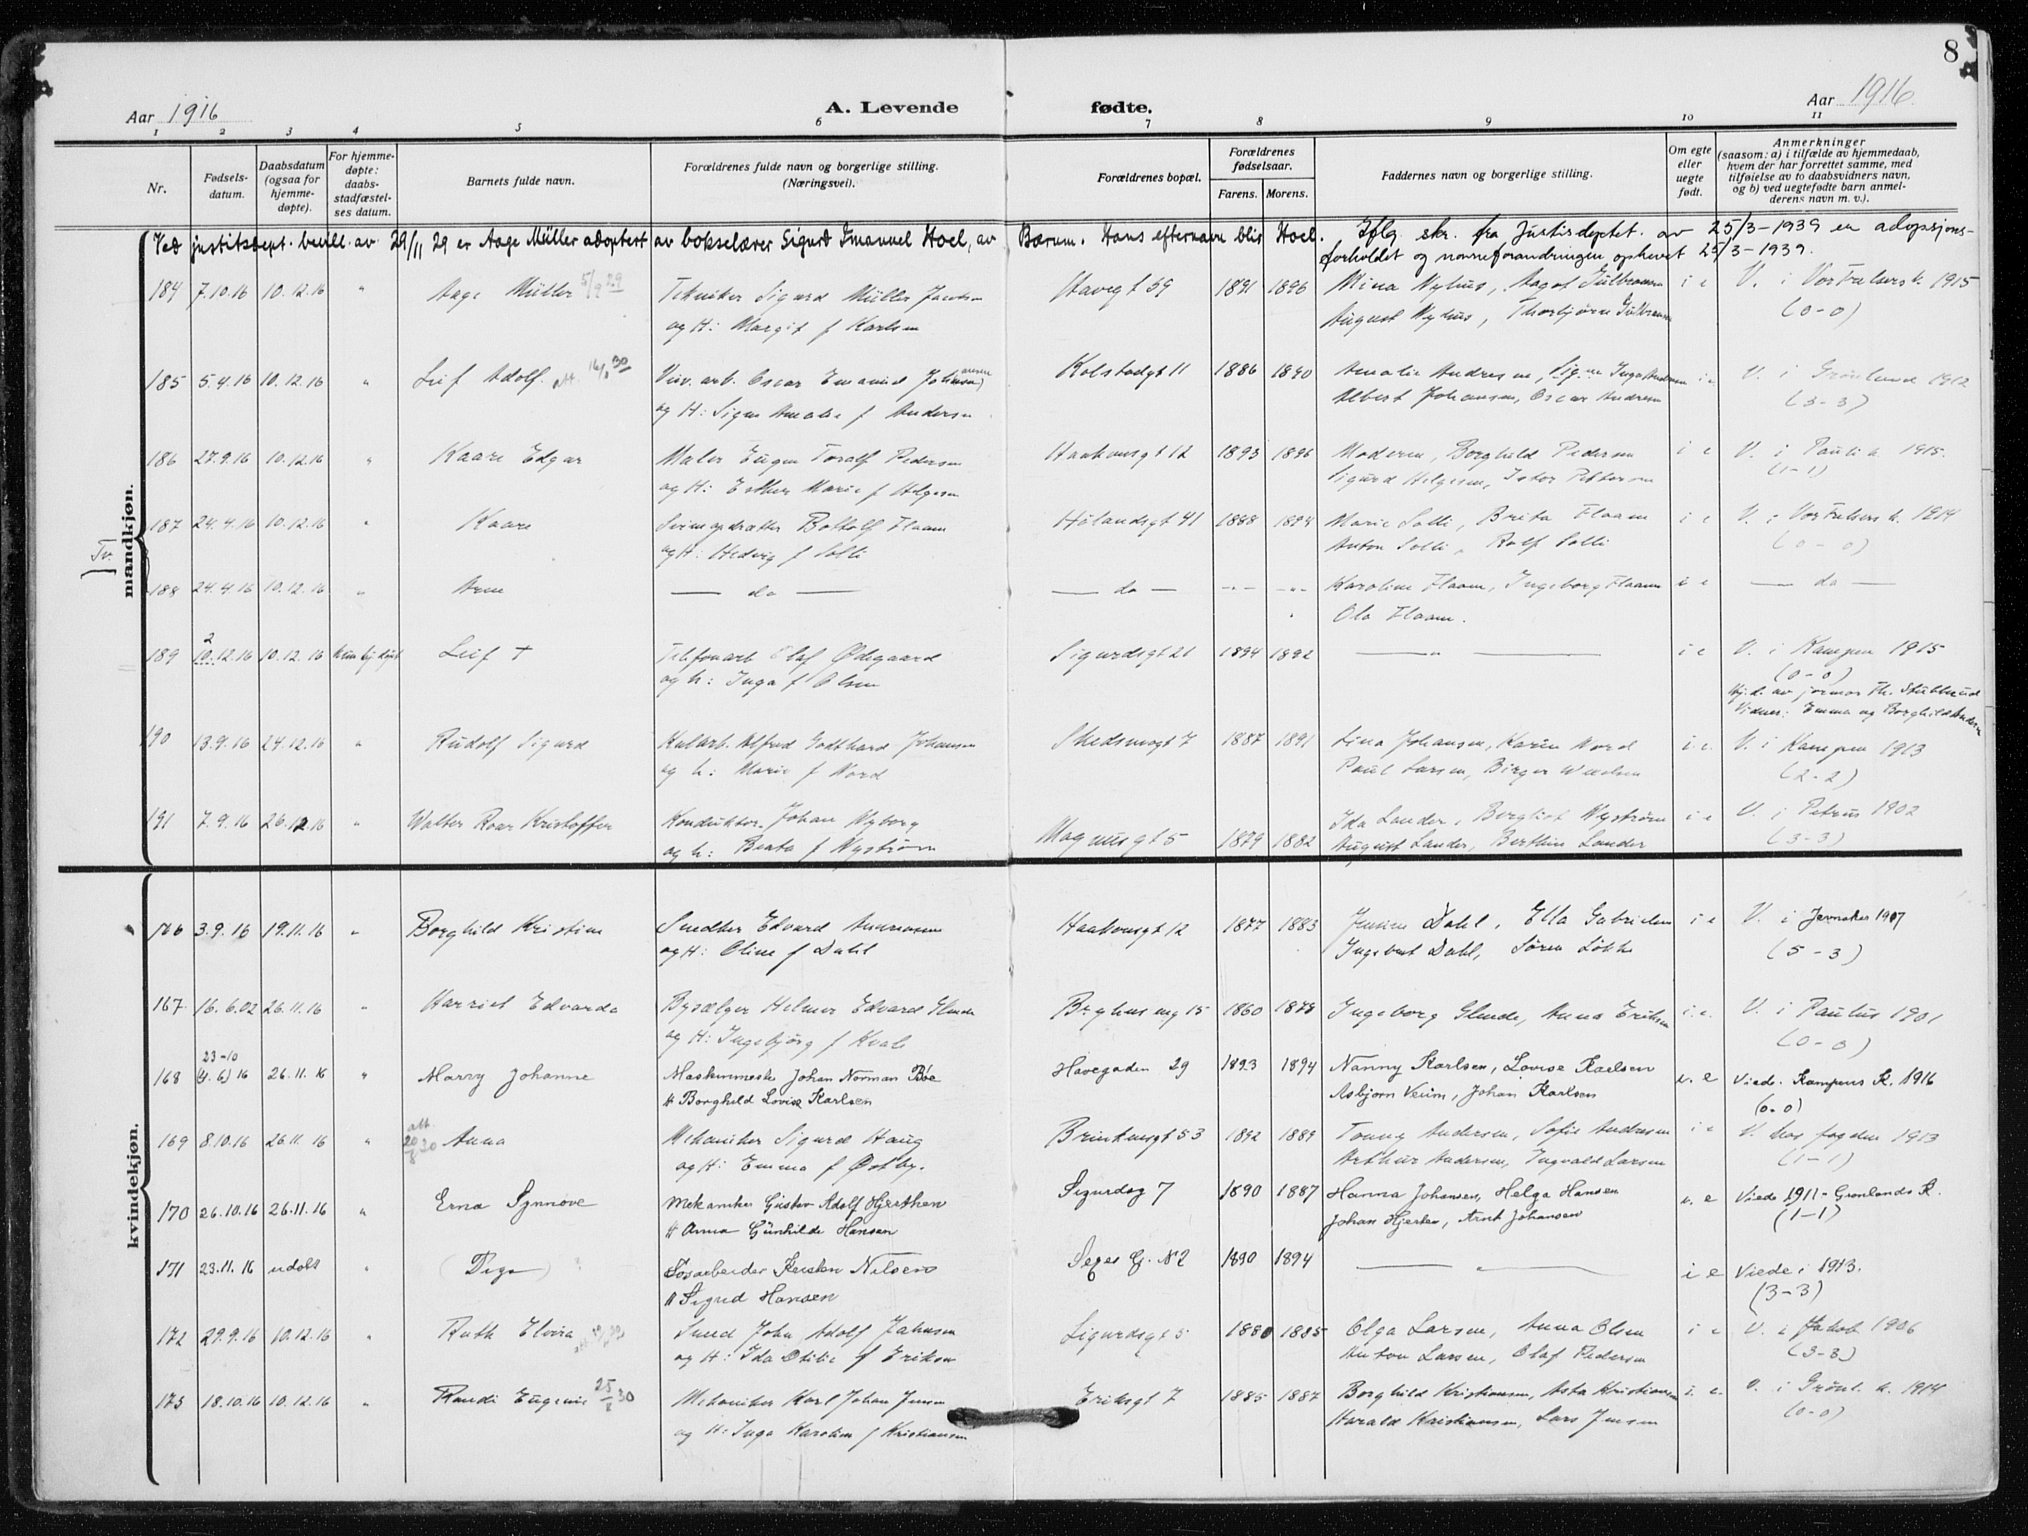 8
Aar 1916 A. Levende fødte. Aar 1916
1 2 3 4 5 6 7 8 9 10 11
Nr.
Fødsels-
datum.
Daabsdatum
(ogsaa for
hjemme-
døpte).
For hjemme-
døpte:
daabs-
stadfæstel-
ses datum.
Barnets fulde navn.
Forældrenes fulde navn og borgerlige stilling.
(Næringsvei).
Forældrenes bopæl.
Forældrenes
fødselsaar.
Farens. Morens.
Faddernes navn og borgerlige stilling.
Om egte
eller
uegte
født.
Anmerkninger
(saasom: a) i tilfælde av hjemmedaab,
hvem der har forrettet samme, med
tilføielse av to daabsvidners navn,
og b) ved uegtefødte barn anmel-
derens navn m. v.).
Ved justitsdept. bevill. av 29/11 29 er Aage Müller adoptert av bokselærer Sigurd Imanuel Hoel, av Bærum. Hans efternavn blir Hoel. Iflg. skr. fra Justisdeptet. av 25/3-1939 er adopsjons-
forholdet og navneforandringen ophevet 25/3-1939.
mandkjøn.
Tv.
184 7.10.16 10.12.16 " Aage Müller 5/9 29 Tekniker Sigurd Müller Jacobsen 59 1891 1896 Mina Nyhus, Aagot Gulbransen i e V. i Vor Frelsers k. 1915
og H: Margit f Karlsen August Nyhus, Thorbjørn Gulbransen (0-0)
185 5.4.16 10.12.16 " Leif Adolf Oscar Emanuel Johansen Kolstadgt 11 1886 1890 Amalie Andresen, Signe i e V. i Grønland 1912
og H: Signe Amalie f Andersen Albert Johansen, Oscar Andresen (3-3)
186 27.9.16 10.12.16 " Kaare Edgar Maler Eugen Toralf Pedersen Haakonsgt 12 1893 1896 Moderen, Borghild Pedersen i e V. i Paulus k. 1915.
og H: Esther Marie f Helgesen Sigurd Helgesen, Pettersen (1-1)
187 24.4.16 10.12.16 " Kaare Bottolf Flaam Hølandsgt 41 1888 1894 Marie Solli, Brita Flaam i e V. i Vor Frelsers k. 1914
og H: Hedvig f Solli Anton Solli, Rolf Solli (0-0)
188 24.4.16 10.12.16 " Arne — do — — do — -"- -"- Karoline Flaam, Ingeborg Flaam i e — do —
Ola Flaam.
189 2 10.12.16 10.12.16 Leif † Telefonarb. Olaf Ødegaard Sigurdsgt 21 1894 1892 — " — i e V. i Kampen 1915
og h: Inga f Olsen (0-0)
Hj. d. av jormor Th. Stubberud
Vidner: Emma og Borghild Andersen
190 13.9.16 24.12.16 " Rudolf Sigurd Alfred Godthard Johansen Skedsmogt 7 1887 1891 Lina Johansen, Karin Nord i e. V. i Kampen 1913
og h: Marie f Nord Paul Larsen, Birger (2-2)
191 7.9.16 26.12.16 " Walter Roar Kristoffer Konduktør Johan Nyborg Magnusgt 5 1879 1882 Ida Lander, Bergliot Nystrøm i e V. i Petrus 1902
og h: Beata f Nystrøm August Lander, Berthin Lander (3-3)
kvindekjøn.
166 3.9.16 19.11.16 " Borghild Kristine Smed Edvard Andreassen Haakonsgt 12 1877 1883 Dahl, Ella Gabrielsen i e V. i Jevnaker 1907
og H: Oline f Dahl Ingebert Dahl, Søren Løkke (5-3)
167 16.6.02 26.11.16 " Harriet Edvarda Bysælger Helmer Edvard 15 1860 1878 Ingeborg Anna Eriksen i. e. V. i Paulus 1901
og H: Ingebjørg f Kvale (0-0)
168 23-10 (4.6) 16 26.11.16 " Marry Johanne Maskinmester Johan Norman Bøe Havegaden 29 1893 1894 Nanny Karlsen, Lovise Karlsen e. e Viede. Kampens K. 1916
H Borghild Lovise Karlsen Asbjørn Veum, Johan Karlsen (0-0)
169 8.10.16 26.11.16 " att. 20/8 20 Anna Mekaniker Sigurd Haug 53 1892 1889 Tonny Andersen, Sofie Andersen i e V. hos fogden 1913
og H: Emma f Østby. Arthur Andersen, Ingvald Larsen (1-1)
170 26.10.16 26.11.16 " Erna Synnøve Mekaniker Gustav Adolf Hjerthen Sigurdsg 7 1890 1887 Hanna Johansen, Helga Hansen e. e Viede 1911 - Grønlands K.
H Anna Gunhilde Hansen Johan Hjerten, Arnt Johansen (1-1)
171 23.11.16 udøbt " (Pige) Karsten Nilsen N 2 1890 1894 — " — i e Viede i 1913.
H Sigrid Hansen (3-3)
172 29.9.16 10.12.16 " Ruth Elvira Smed John Adolf Johnsen Sigurdsgt 5 1880 1885 Olga Larsen, Anna Olsen i e V. i Jakob 1906
og H: Ida Otilie f Eriksen Anton Larsen, Olaf Pedersen (3-3)
173 18.10.16 10.12.16 " Randi Eugenie 25/2 30 Mekaniker Karl Johan Jensen Eriksgt 7 1885 1887 Borghild Kristiansen, Asta Kristiansen i. e. V. i Grønl. k. 1914
og H: Inga Karoline f Kristiansen Harald Kristiansen, Lars Jensen (0-0)